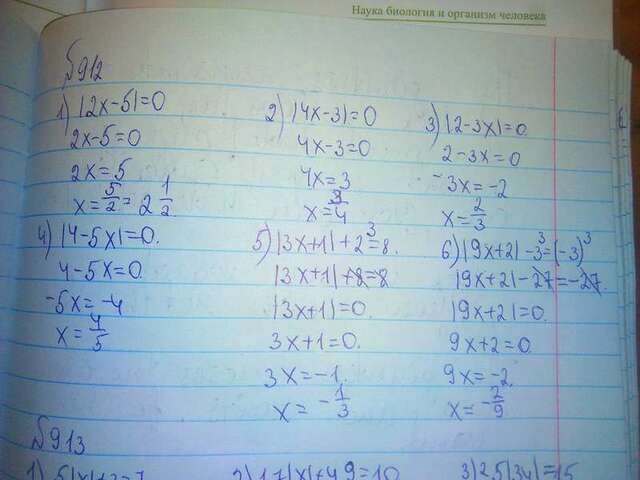 Наука биология и организм человека
№912
1) |2x-5|=0
2x-5=0
2x=5
x=5/2=2 1/2
2) |4x-3|=0
4x-3=0
4x=3
x=3/4
3) |2-3x|=0
2-3x=0
-3x=-2
x=2/3
4) |4-5x|=0.
4-5x=0
-5x=-4
x=4/5
5) |3x+1|+2³=8.
|3x+1|+8=8
|3x+1|=0.
3x+1=0.
3x=-1.
x=-1/3
6) |9x+2|-3³=(-3)³
|9x+2|-27=-27.
|9x+2|=0.
9x+2=0.
9x=-2.
x=-2/9
№913